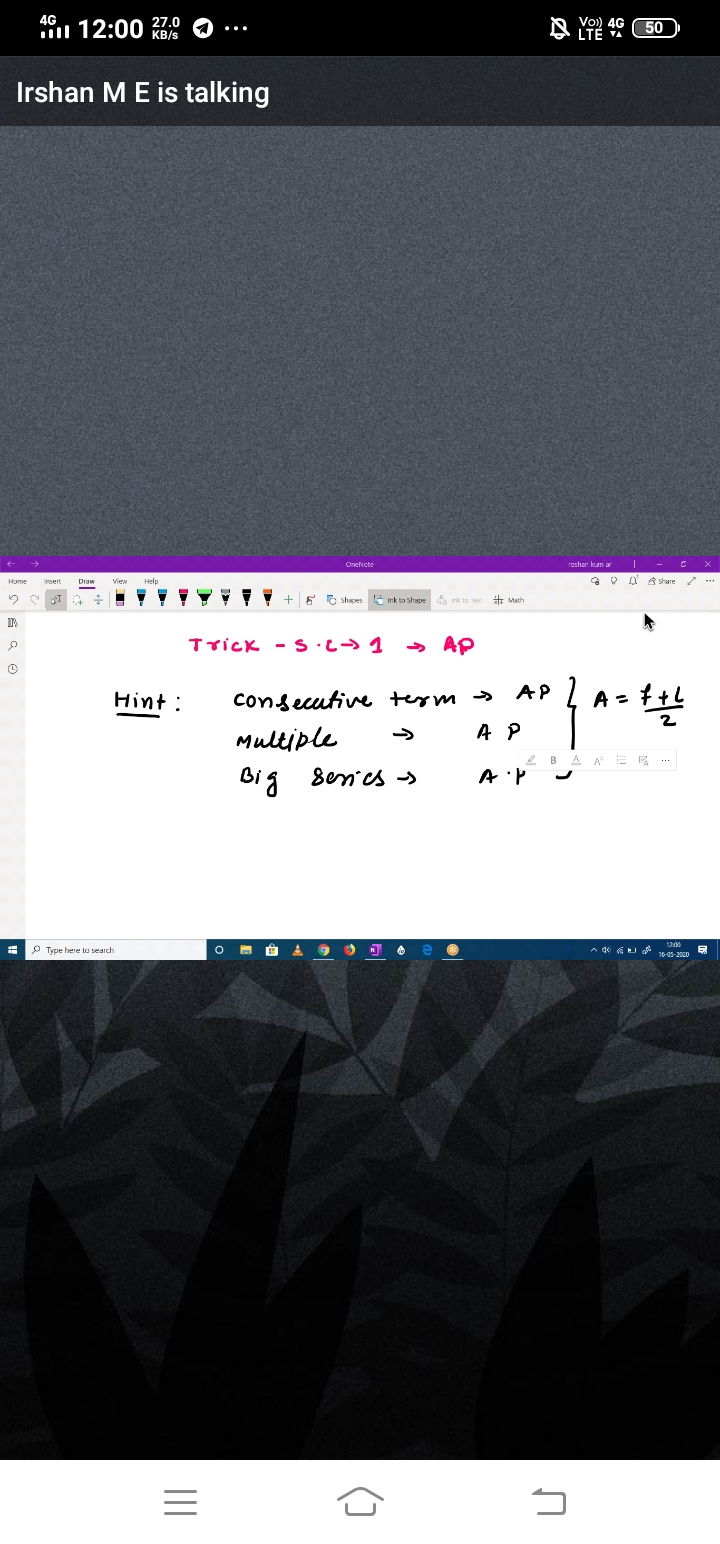 4G 12:00 27.0 KB/s ... Vo)) LTE 4G 50
Irshan M E is talking
OneNote roshan kumar
Home Insert Draw View Help Share
Shapes Ink to Shape Ink to Text Math
Trick - S.C → 1 → AP
Hint : Consecutive term → AP A = f+L/2
Multiple → A P
B A
Big Series → A.P
Type here to search 12:00
16-05-2020